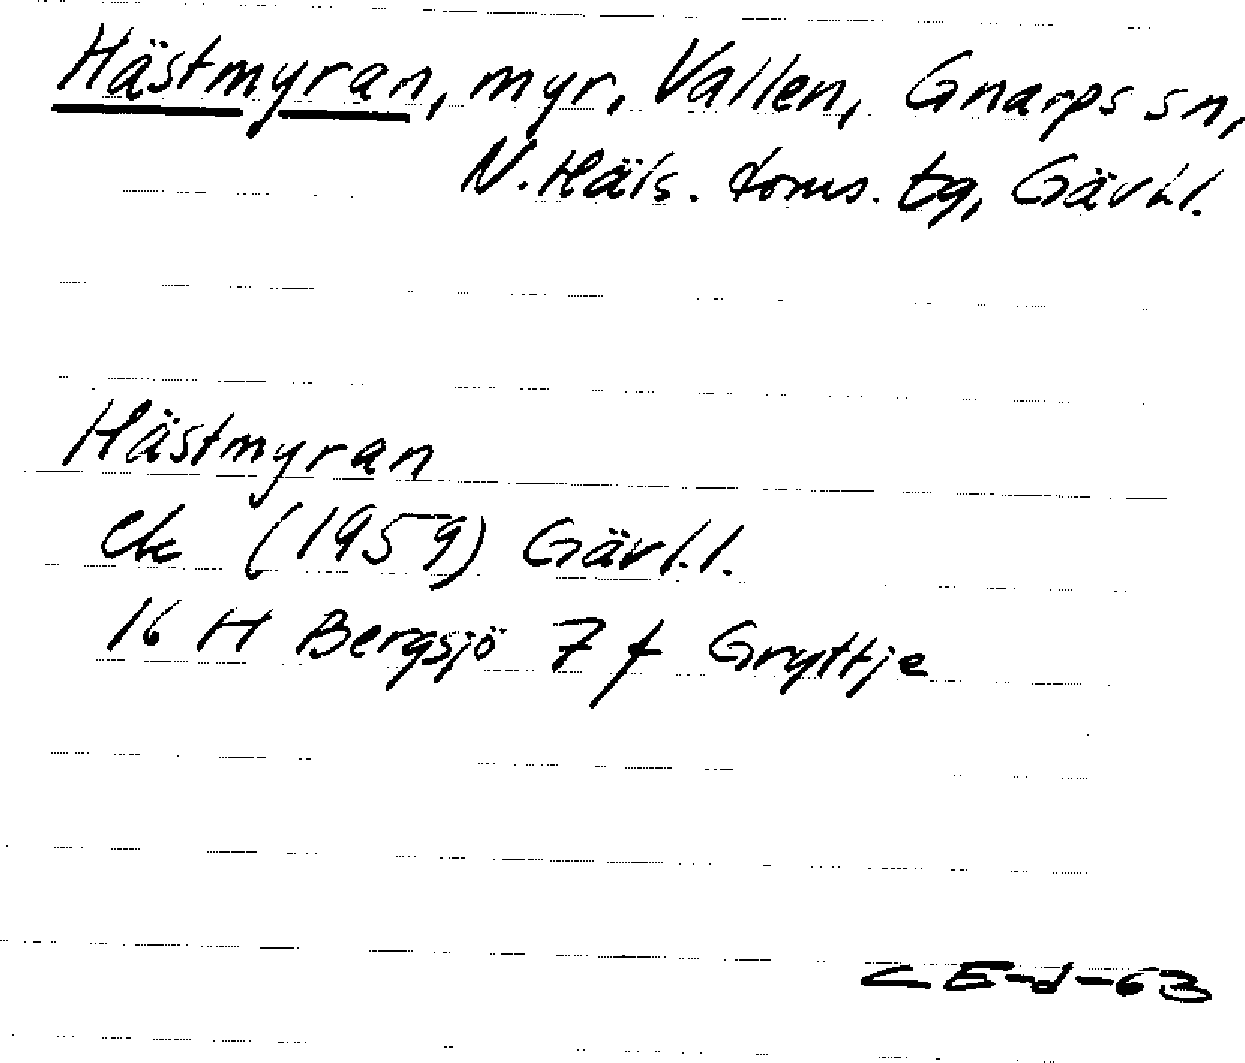 Hästmyran, myr, Vallen, Gnarps sn,
N. Häls. doms. tg, Gävl.l.
Hästmyran
ek (1959) Gävl.l.
16 H Bergsjö 7 f Gryttje